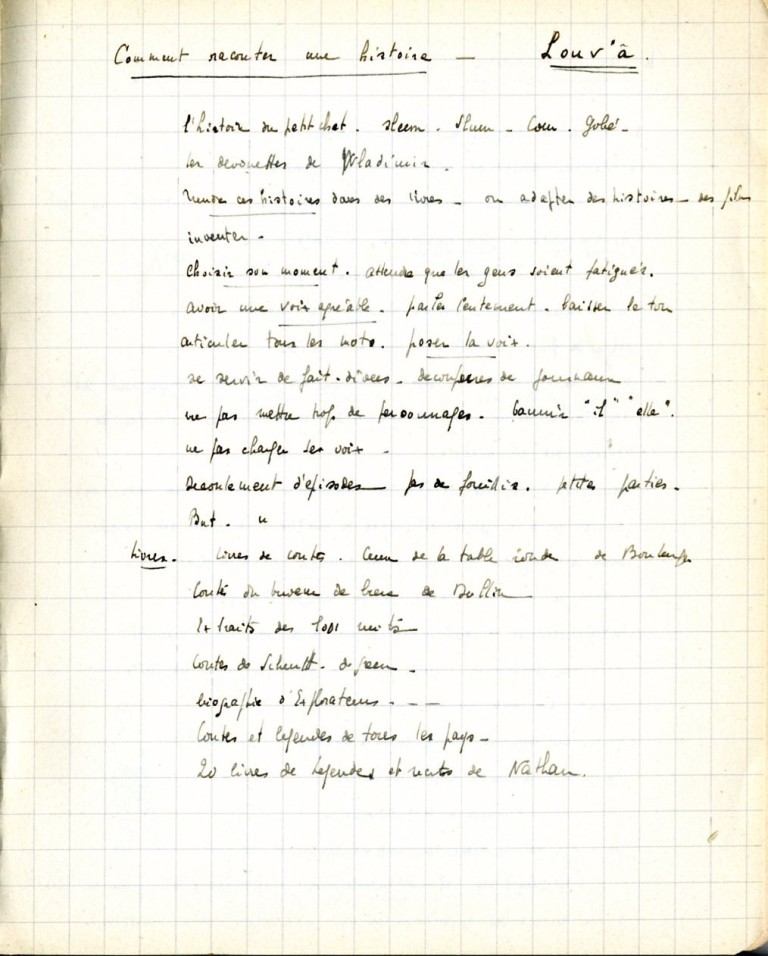 Comment raconter une histoire — Louv'â.
l'histoire du petit chat. sleem. slum - Com. Gobé -
les devinettes de Wladimir.
Prendre ces histoires dans des livres - ou adapter des histoires - des films
inventer -
Choisir son moment. attendre que les gens soient fatigués.
avoir une voix agréable. parler lentement. baisser le ton
articuler tous les mots. poser la voix.
se servir de fait-divers - découpures de journaux
ne pas mettre trop de personnages. bannir "il" "elle".
ne pas changer les voix -
Déroulement d'épisodes — pas de petites parties.
But.
Livres. Livres de contes. Ceux de la table ronde de Boulenger
Conte du buveur de bière de Dullin
Extraits des 1001 nuits
Contes de Schmidt. de green -
biographie d'Explorateurs. - --
Contes et legendes de tous les pays -
20 livres de Legendes et recits de Nathan.